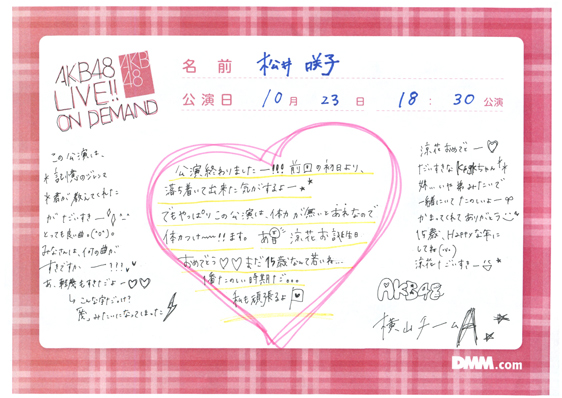 AKB48
LIVE!!
ON DEMAND
AKB
48
名 前 松井 咲子
公演日 10月 23日 18:30公演
この公演は、
君が教えてくれた
がだいすきー
とっても良い曲。
みなさんは、の曲が
すきですかー???
あ、もすきだよー♡♡
こんな字だっけ?
みたいになってしまった
公演終わりましたー!!! 前回の初日より、
落ち着いて出来た気がするよー
でもやっぱりこの公演は、体力が無いとあれなので
体力つけーーー!!ます。 あ 涼花お誕生日
おめでとう♡♡まだ15歳なんて若いね...
一番たのしい時期だ...
私も頑張るよ
涼花おめでとー♡
だいすきなちゃん
妹みたいで
一緒にいてたのしいよー
かまってくれてありがとう
15歳、Happyな年に
してね
涼花だいすきー
AKB48
横山チームA
DMM.com